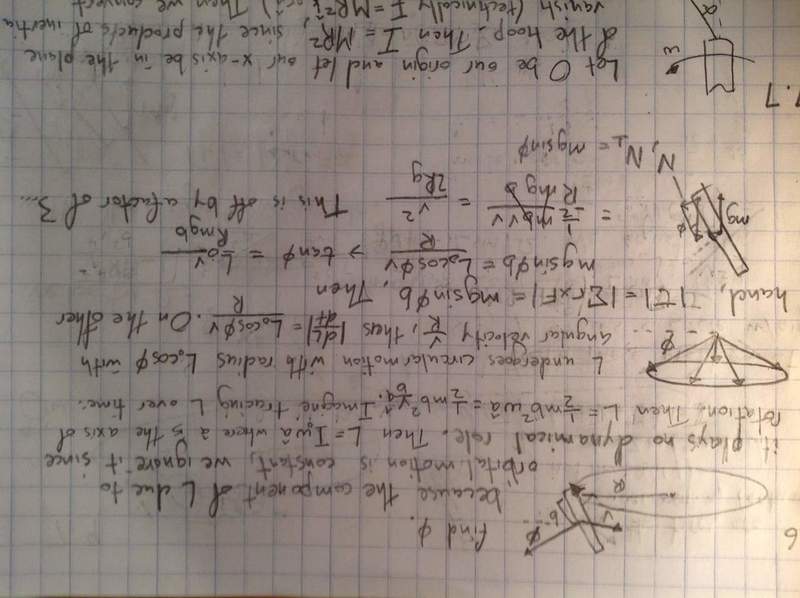 6
find φ.
because the component of L due to
orbital motion is constant, we ignore it since
it plays no dynamical role. Then L = I₀ωâ where â is the axis of
rotation. Then L = ½mb²ωâ = ½mb² v/b â. Imagine tracing L over time.
L undergoes circular motion with radius L₀cosφ with
angular velocity v/R, thus, |dL/dt| = L₀cosφ v/R. On the other
hand, |τ| = |Σr×F| = mgsinφb. Then,
mgsinφb = L₀cosφv/R → tanφ = L₀v/Rmgb
= ½mbvv/Rmgb = v²/2Rg This is off by a factor of 3...
N, N⊥ = mgsinφ
mg
φ
R
b
v
φ
φ
1.7
Let O be our origin and let our x-axis be in the plane
of the hoop. Then I = MR², since the products of inertia
vanish (technically I = MR²
Then we convert
ω
α